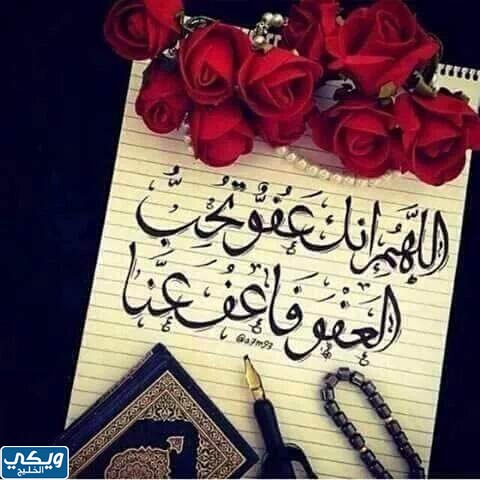 اللَّهُمَّ إنك عَفُوٌّ تُحِبُّ
العَفْوَ فَاعْفُ عَنَّا
@a7m93
ويكي
الخليج